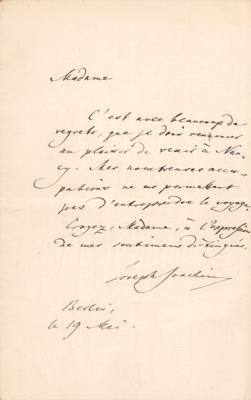 Madame
C'est avec beaucoup de
regrets, que je dois renoncer
au plaisir de venir à Nan-
cy. Mes nombreuses occu-
pations ne me permettent
pas d'entreprendre le voyage.
Croyez, Madame, à l'expression
de mes sentiments distingués.
Joseph Joachim
Berlin,
le 19 Mai.